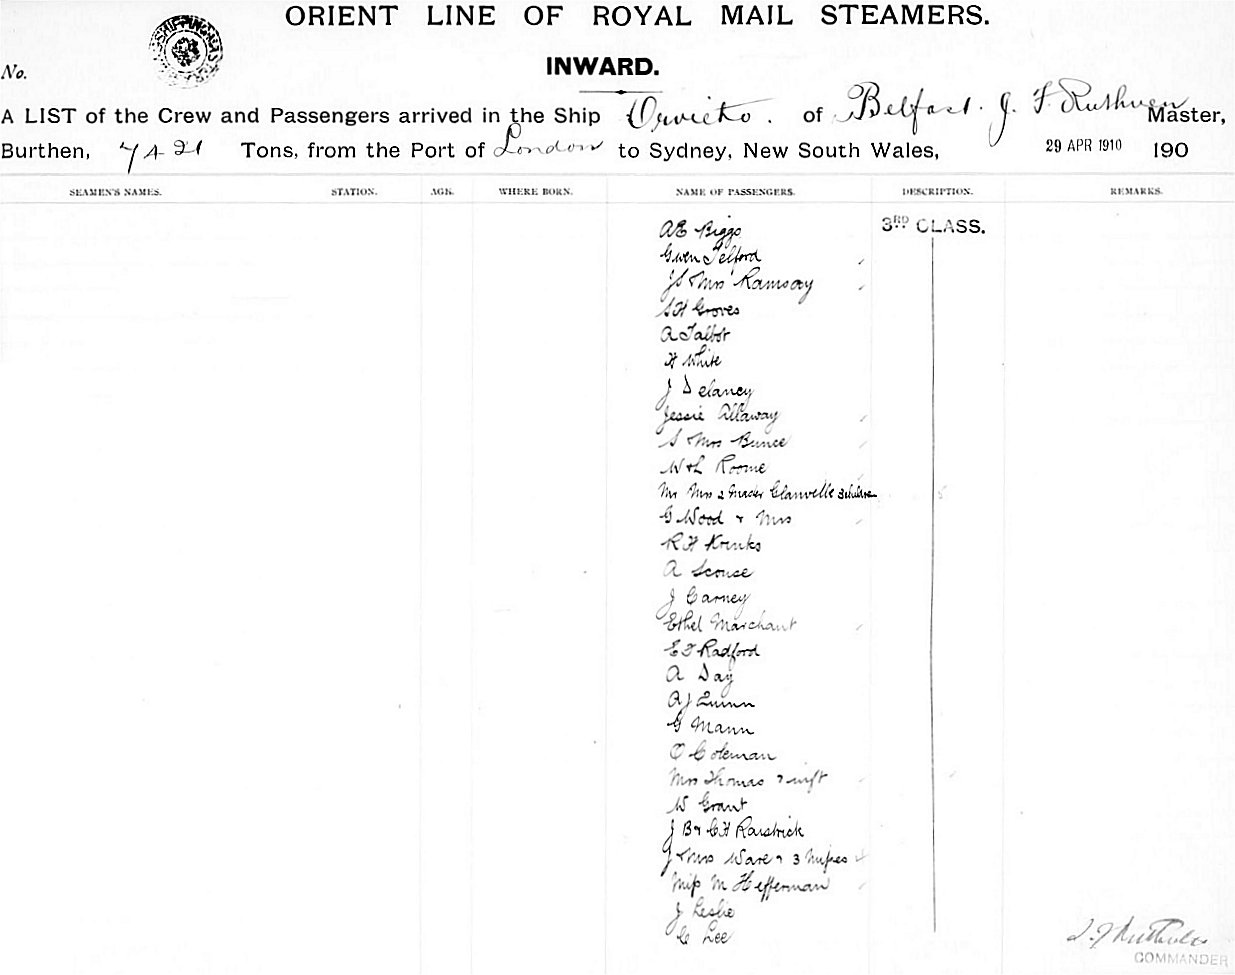 ORIENT LINE OF ROYAL MAIL STEAMERS.
No.
INWARD.
A LIST of the Crew and Passengers arrived in the Ship Orvieto. of Belfast. J. F. Ruthven Master,
Burthen, 7421 Tons, from the Port of London to Sydney, New South Wales, 29 APR 1910 190
SEAMEN'S NAMES. STATION. AGE. WHERE BORN. NAME OF PASSENGERS. DESCRIPTION. REMARKS.
AE Biggs 3RD CLASS.
Gwen Telford
JS & Mrs Ramsay
SH Groves
A Talbot
H White
J Delaney
Jessie Allaway
S & Mrs Bunce
W & L Roome
Mr Mrs & Master Glanville
G Wood & Mrs
RH Krinks
A Scouse
J Carney
Ethel Marchant
EF Radford
A Day
AJ Quinn
G Mann
C Coleman
Mrs Thomas & inft
W Grant
J B & CH Raistrick
J & Mrs Ware & 3 Misses
Miss M Hefferman
J Leslie
C Lee
COMMANDER